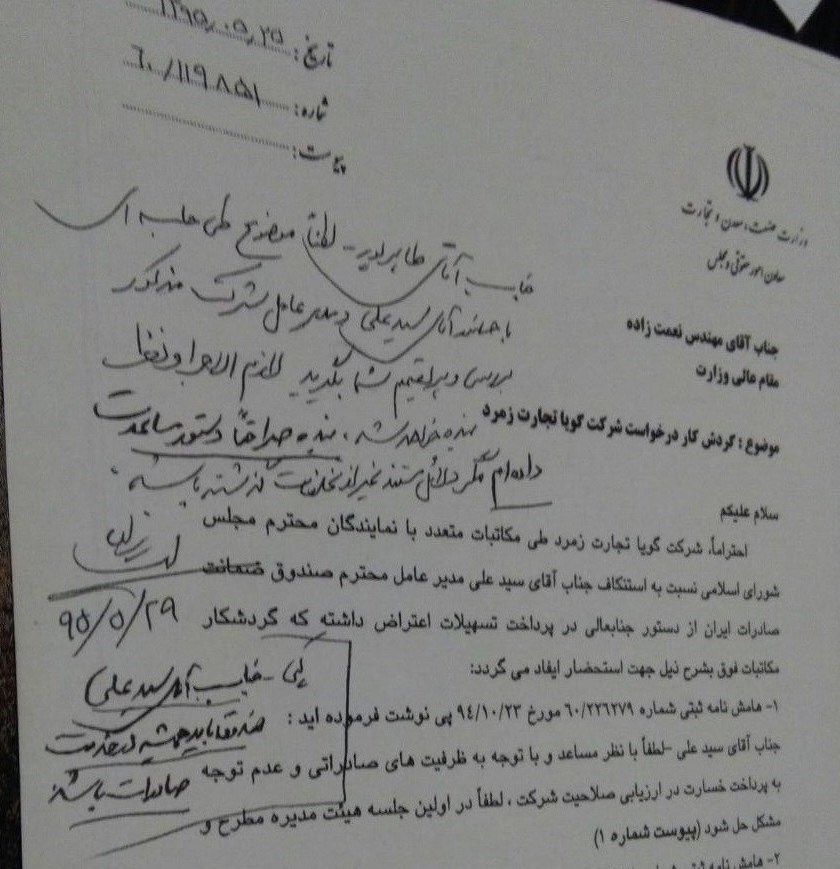 تاریخ: ۱۳۹۵،۰۵،۲۵
شماره: ۶۰/۱۱۹۸۵۱
پیوست:
وزارت صنعت، معدن و تجارت
معاون امور حقوقی و مجلس
جناب آقای مهندس نعمت زاده
مقام عالی وزارت
موضوع : گردش کار درخواست شرکت گویا تجارت زمرد
جناب آقای لطفاً موضوع طی جلسه ای
با حضور آقای سید علی و مدیر عامل شرکت مذکور
بررسی و تصمیم بگیرید لازم الاجرا و نظر
بنده خواهد شد، بنده دستور مساعدت
داده ام مگر دلائل مستند غیر از تخلفات گذشته باشد.
۹۵/۵/۲۹
سلام علیکم
احتراماً، شرکت گویا تجارت زمرد طی مکاتبات متعدد با نمایندگان محترم مجلس
شورای اسلامی نسبت به استنکاف جناب آقای سید علی مدیر عامل محترم صندوق ضمانت
صادرات ایران از دستور جنابعالی در پرداخت تسهیلات اعتراض داشته که گردشکار
مکاتبات فوق بشرح ذیل جهت استحضار ایفاد می گردد:
۱- هامش نامه ثبتی شماره ۶۰/۲۲۶۲۷۹ مورخ ۹۴/۱۰/۲۳ پی نوشت فرموده اید :
جناب آقای سید علی -لطفاً با نظر مساعد و با توجه به ظرفیت های صادراتی و عدم توجه
به پرداخت خسارت در ارزیابی صلاحیت شرکت ، لطفاً در اولین جلسه هیئت مدیره مطرح و
مشکل حل شود (پیوست شماره ۱)
۲- هامش نامه ثبتی
جناب آقای سید علی
صندوق باید همیشه در خدمت
صادرات باشد